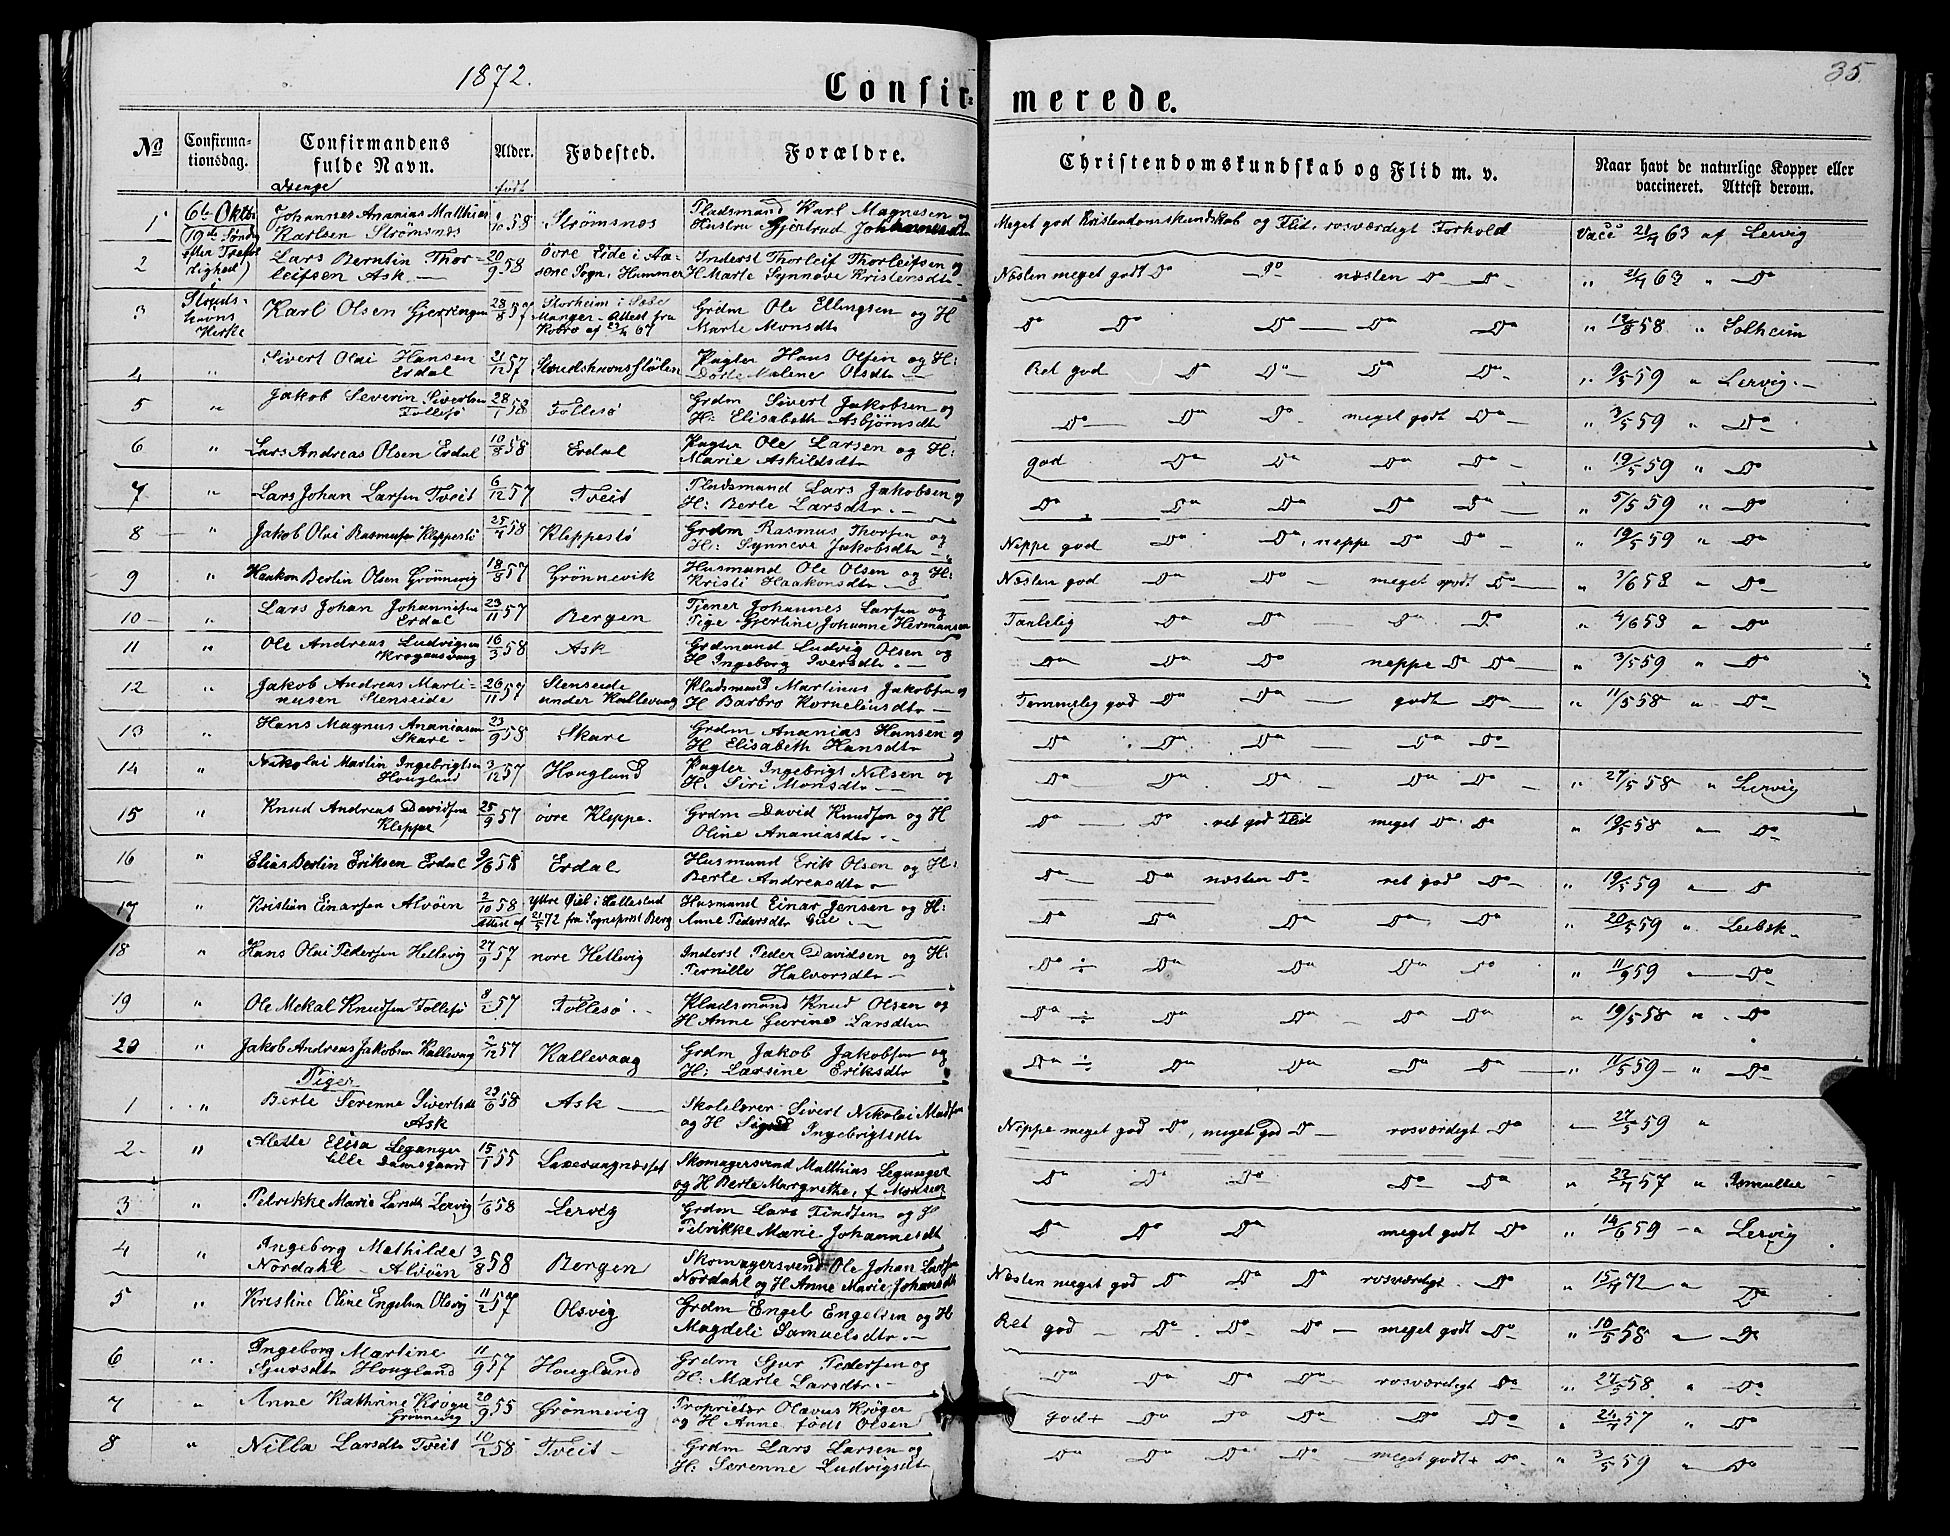 1872.
35
Confir-
merede.
No
Confirma-
tionsdag.
Confirmandens
fulde Navn.
Alder.
Fødested.
Forældre.
Christendomskundskab og Flid m. v.
Naar havt de naturlige Kopper eller
vaccineret. Attest derom.
Drenge
født
1 6te Oktbr Johannes Ananias Mathias 1/10 58 Strømsnæs Pladsmand Karl Magnesen og Meget god Kristendomskundskab og Flid. rosværdigt Forhold Vacc 21/7 63 af Lervig
Karlsen Strømsnæs Hustru Gjertrud Johannesdtr
(19de Søndag
efter Trefol
dighed)
2 Lars Berntin Thor- 20/9 58 øvre Eide i Aa- Inderst Thorleif Thorleifsen og Næsten meget godt Do Do næsten Do Do " 21/7 63 " Do
leifsen Ask sene Sogn, Hammer H. Marte Synnøve Kristensdtr
3 Struds- Karl Olsen Gjerringen 28/8 57 Storheim i Sæbø Grdm Ole Ellingsen og H Do Do Do Do Do " 19/8 58 " Solheim
havns Manger - Attest fra Marte Monsdtr
Kirke Kobro af 23/4 67
4 " Sivert Olai Hansen 21/12 57 Strudshavnsstølen Pagter Hans Olsen og H: Ret god Do Do Do Do " 9/5 59 " Lervig
Erdal Dorte Malene Olsdtr
5 " Jakob Severin Sivertsen 28/1 58 Follesø Grdm Sivert Jakobsen og Do Do Do meget godt Do " 3/5 59 " Do
Follesø H: Elisabeth Asbjørnsdtr
6 " Lars Andreas Olsen Erdal 10/8 58 Erdal Pagter Ole Larsen og H: god Do Do Do Do " 19/5 59 " Do
Marie Askildsdtr
7 " Lars Johan Larsen Tveit 6/12 57 Tveit Pladsmand Lars Jakobsen og Do Do Do Do Do " 5/5 59 " Do
H: Berte Larsdtr
8 " Jakob Olai Rasmusen Kleppestø 25/4 58 Kleppestø Grdm Rasmus Thorsen og Neppe god Do Do, neppe Do Do " 19/5 59 " Do
H: Synneve Jakobsdtr
9 " Haakon Bertin Olsen Grønnevig 18/8 57 Grønnevik Husmand Ole Olsen og H: Næsten god Do Do meget godt Do " 3/6 58 " Do
Kristi Haakonsdtr
10 " Lars Johan Johannesen 23/11 57 Bergen Tjener Johannes Larsen og Taalelig Do Do Do Do " 4/6 58 " Do
Erdal Pige Gjertine Johanne Hermansen
11 " Ole Andreas Ludvigsen 16/3 58 Ask Grdmand Ludvig Olsen og Do Do Do neppe Do Do " 3/5 59 " Do
Krogaasvaag H Ingeborg Iversdtr
12 " Jakob Andreas Marti- 26/11 57 Stenseide Pladsmand Martinus Jakobsen og Temmelig god Do Do godt Do " 11/5 58 " Do
nusen Stenseide under Kallevaag H Barbro Korneliusdtr
13 " Hans Magnus Ananiasen 23/9 58 Skare Grdm Ananias Hansen og Do Do Do Do Do
Skare H Elisabeth Hansdtr
14 " Nikolai Martin Ingebrigtsen 3/12 57 Hougland Pagter Ingebrigt Nilsen og Do Do Do Do Do " 27/5 58 " Lervig
Hougland H: Siri Monsdtr
15 " Knud Andreas Davidsen 25/9 57 øvre Kleppe. Grdm David Knudsen og H Do Do ret god Flid meget Do Do " 19/5 58 " Do
Kleppe Oline Ananiasdtr
16 " Elias Bertin Eriksen Erdal 9/6 58 Erdal Husmand Erik Olsen og H: Do Do næsten Do ret god Do " 19/5 59 " Do
Berte Andreasdtr
17 " Kristian Einarsen Alvøen 2/10 58 Yttre Øie i Hellestad Husmand Einar Jensen og H: Do Do Do Do Do " 20/5 59 " Leebsk
Attest af 21/5 72 fra Sogneprest Berg Anne Pedersdtr
18 " Hans Olai Pedersen Hellevig 27/9 57 nore Hellevig Inderst Peder Davidsen og H: Do ÷ Do Do Do Do " 11/9 59 " Do
Pernille Halvorsdtr
19 " Ole Mekal Knudsen Follesø 8/2 57 Follesø Pladsmand Knud Olsen og Do ÷ Do Do Do Do " 19/5 58 " Do
H Anne Gurine Larsdtr
20 " Jakob Andreas Jakobsen Kallevaag 2/12 57 Kallevaag Grdm Jakob Jakobsen og Do ÷ Do Do Do Do " 11/5 59 " Do
H: Larsine Eriksdtr
Piger
1 " Berte Serenne Sivertsdtr 23/6 58 Ask Skolelærer Sivert Nikolai Madsen Neppe meget god Do, meget god Do rosværdigt Do 27/5 59 "
Ask og H Sigrid Ingebrigtsdtr
2 " Alette Elisa Leganger 15/1 55 Laxevaagnæsset Skomagersvend Matthias Leganger Do Do Do Do Do " 22/7 57 "
lille Damsgaard og H Berte Margrethe, f Monsen
3 " Petrikke Marie Larsdtr Lervig 1/6 58 Lervig Grdm Lars Findsen og H Do Do Do meget godt Do " 14/6 59 " Lervig
Petrikke Marie Johannesdt
4 " Ingeborg Mathilde 3/8 58 Bergen Skomagersvend Ole Johan Larsen Næsten meget god Do Do Do rosværdigt Do " 15/4 72 " Do
Nordahl - Alvøen Nordahl og H Anne Marie Johansdtr
5 " Kristine Oline Engelsen Olsvig 11/2 57 Olsvig Grdm Engel Engelsen og H Ret god Do Do Do meget godt Do " 10/5 58 " Do
Magdeli Samuelsdtr
6 " Ingeborg Martine 11/9 57 Hougland Grdm Sjur Pedersen og Do Do Do Do rosværdigt Do " 27/5 58 " Do
Sjursdtr Hougland H: Marte Larsdtr
7 " Anne Kathrine Krøger 20/9 55 Grønnevig Proprietær Olavus Krøger god + Do Do Do Do Do " 24/7 57 " Do
Grønnevig og H Anne, født Olsen
8 " Nilla Larsdtr Tveit 10/2 58 Tveit Grdm Lars Larsen og Do Do Do Do meget godt + Do " 3/5 59 " Do
H: Serenne Ludvigsdtr